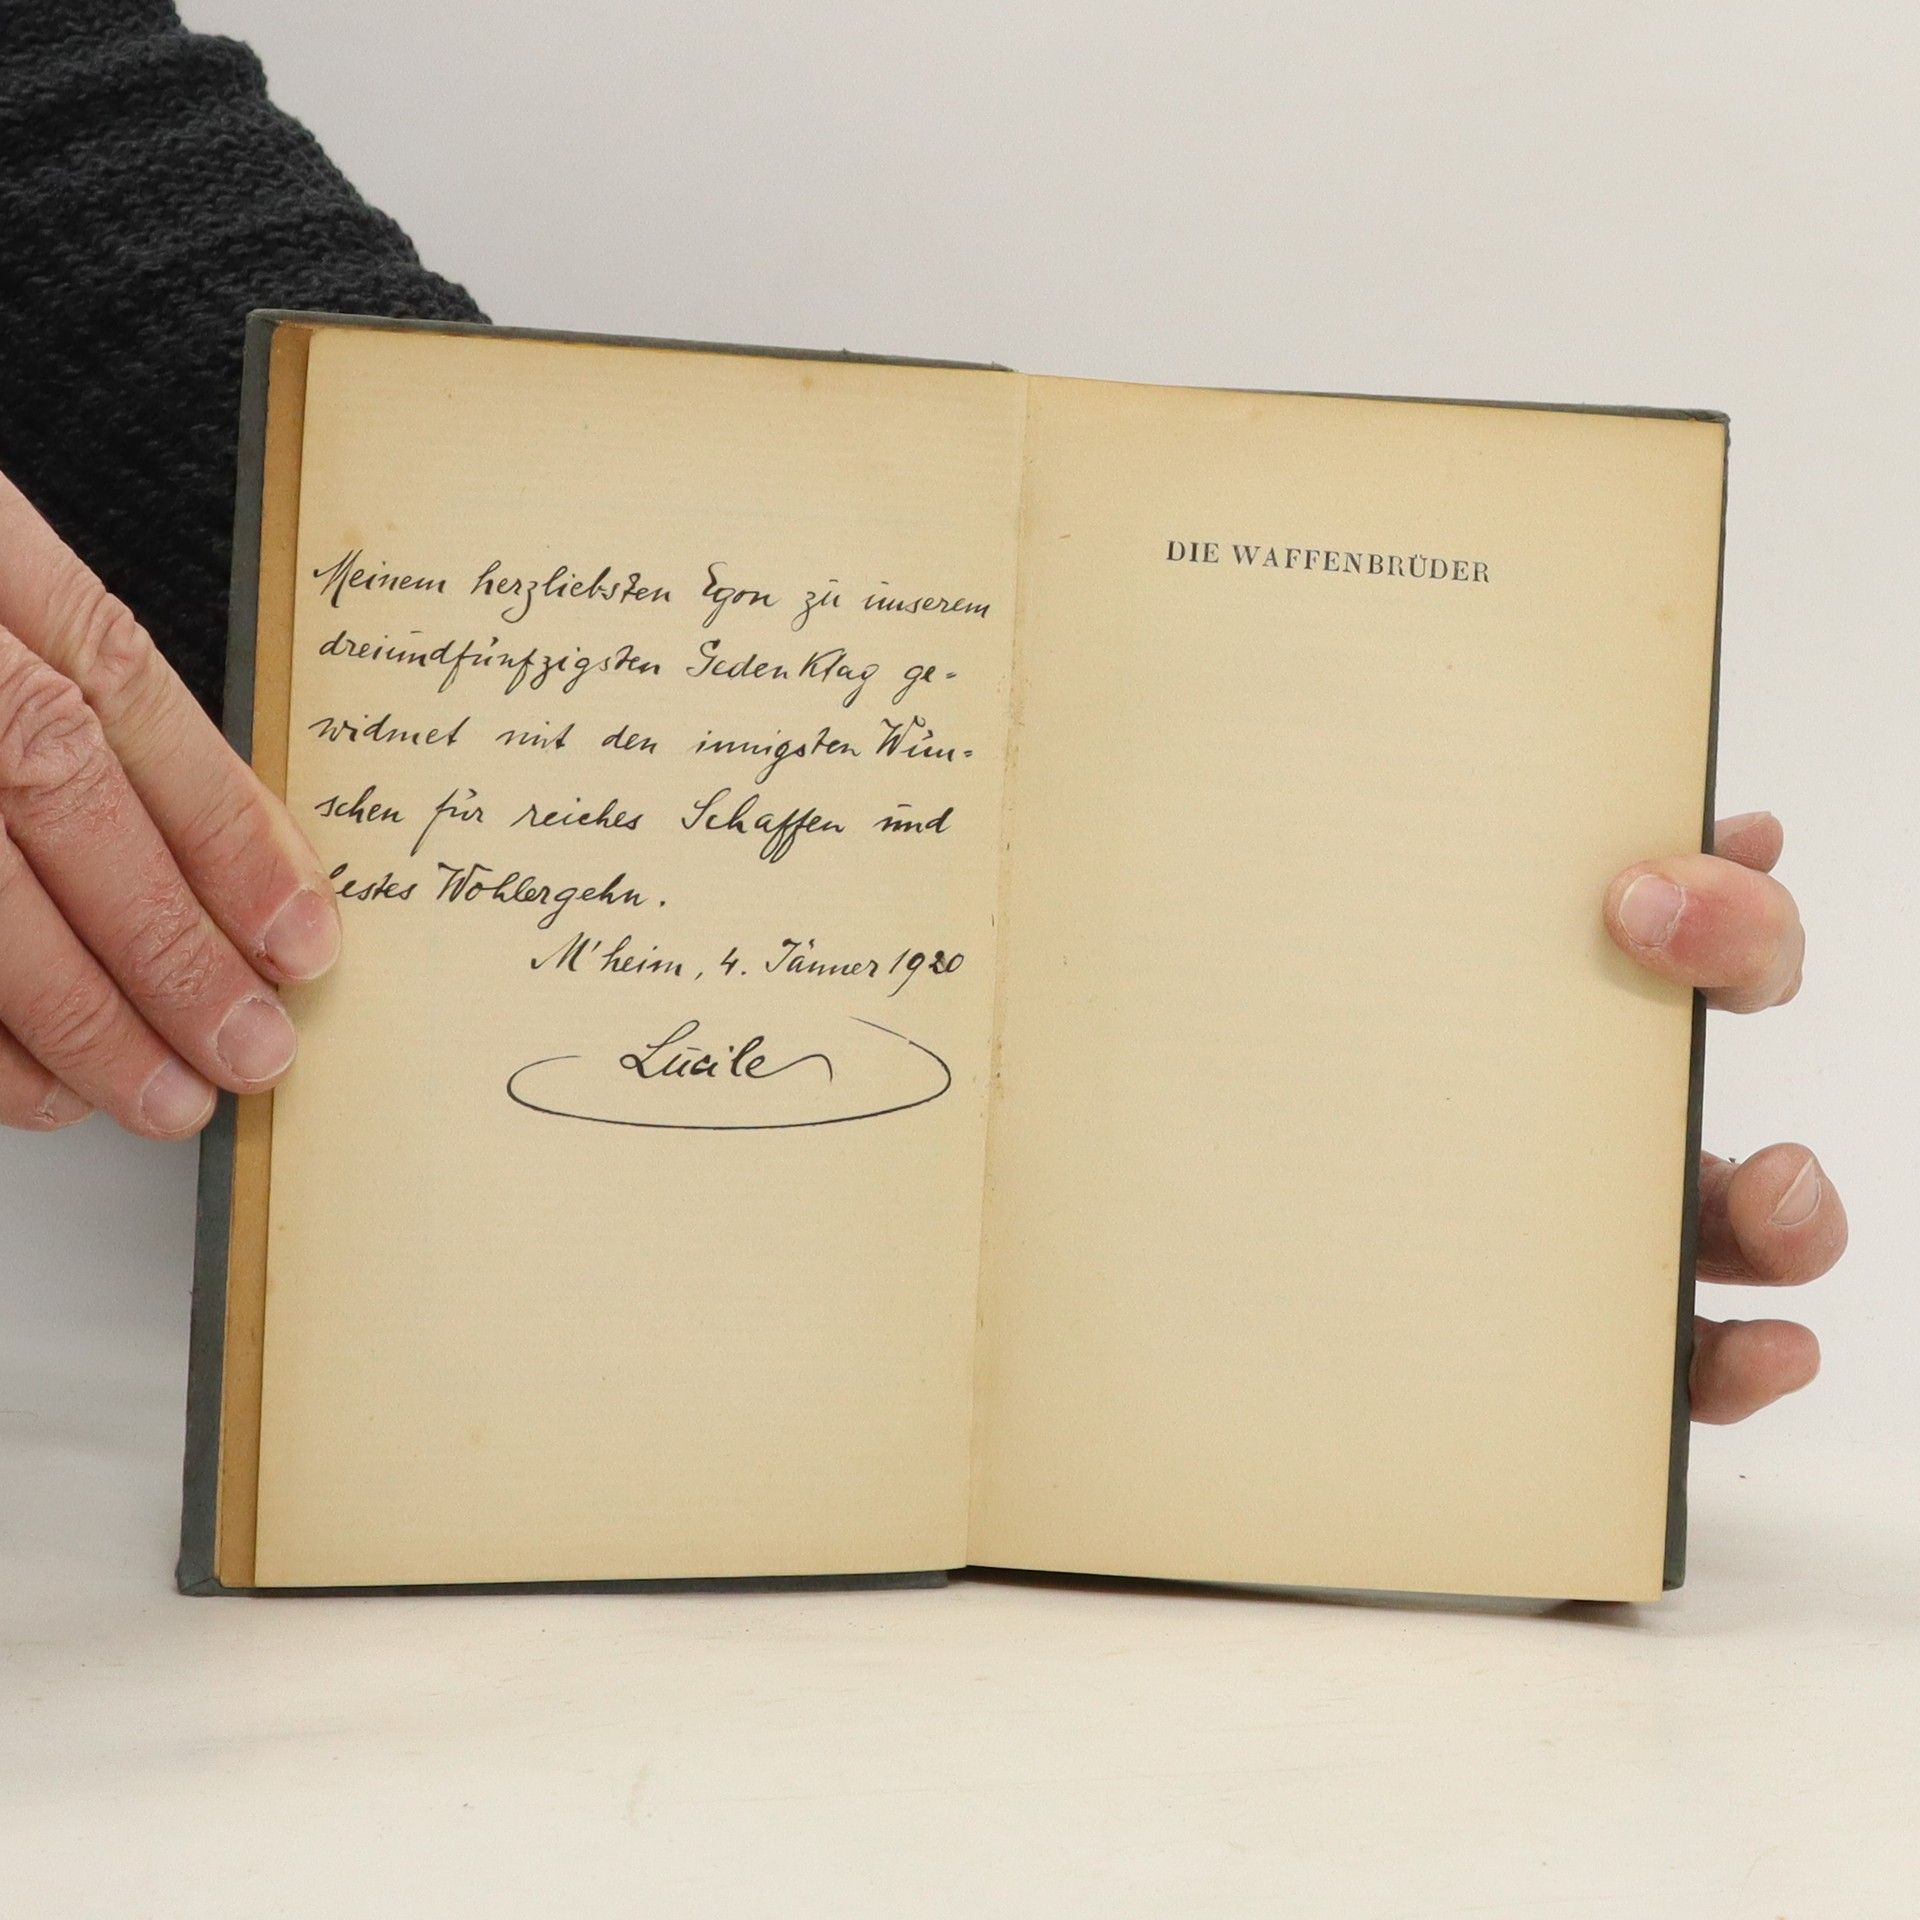 Meinem herzliebsten Egon zu unserem
dreiundfünfzigsten Gedenktag ge-
widmet mit den innigsten Wün-
schen für reiches Schaffen und
bestes Wohlergehn.
M'heim, 4. Jänner 1920
Lucile
DIE WAFFENBRÜDER